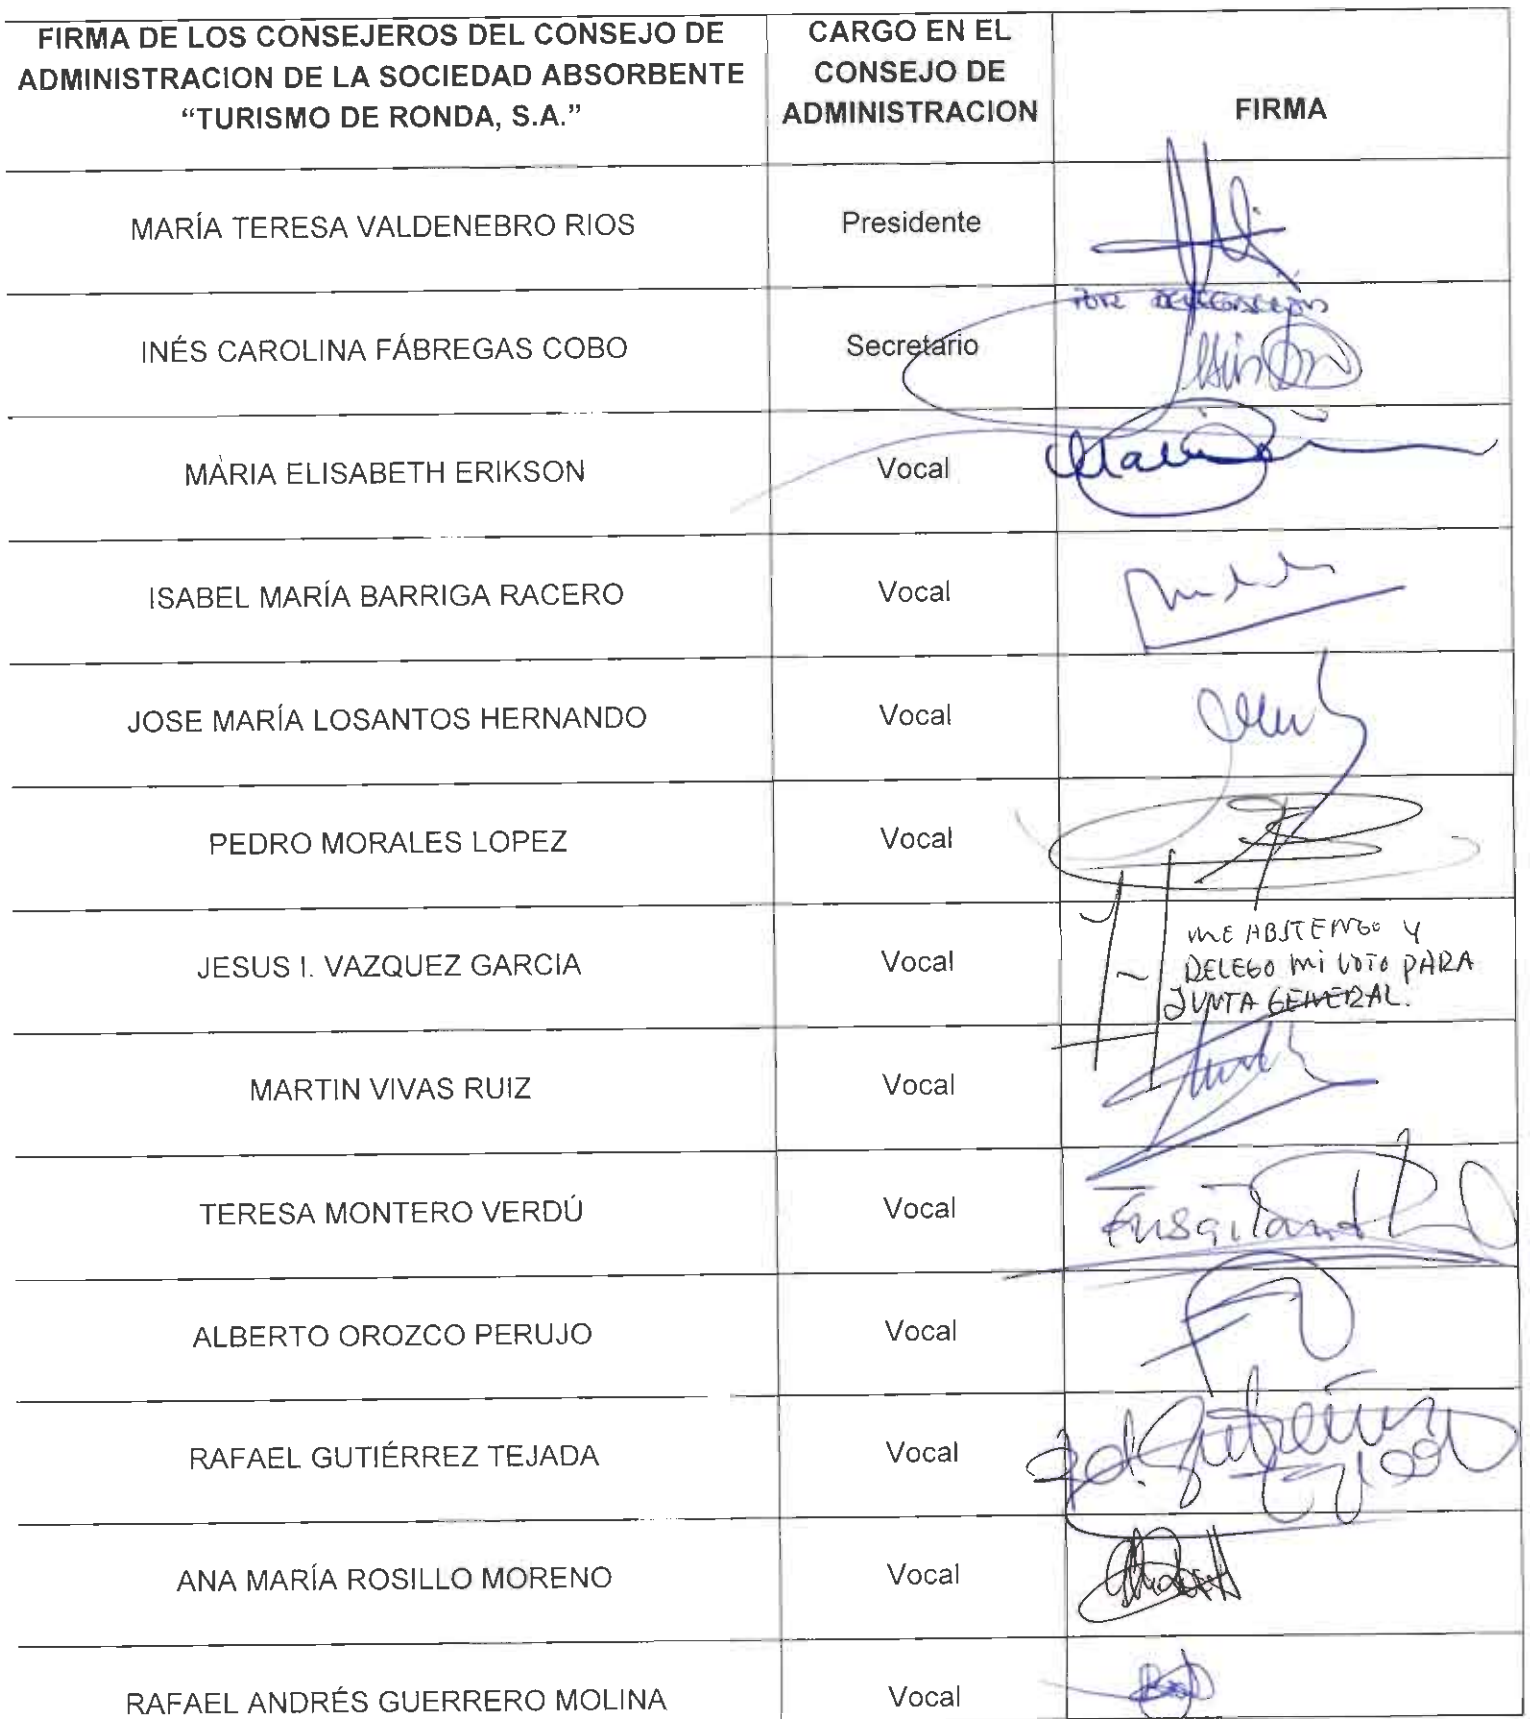 FIRMA DE LOS CONSEJEROS DEL CONSEJO DE
ADMINISTRACION DE LA SOCIEDAD ABSORBENTE
“TURISMO DE RONDA, S.A.”
CARGO EN EL
CONSEJO DE
ADMINISTRACION
FIRMA
MARÍA TERESA VALDENEBRO RIOS
Presidente
INÉS CAROLINA FÁBREGAS COBO
Secretario
POR DELEGACION
MARIA ELISABETH ERIKSON
Vocal
ISABEL MARÍA BARRIGA RACERO
Vocal
JOSE MARÍA LOSANTOS HERNANDO
Vocal
PEDRO MORALES LOPEZ
Vocal
JESUS I. VAZQUEZ GARCIA
Vocal
ME ABSTENGO Y
DELEGO MI VOTO PARA
JUNTA GENERAL.
MARTIN VIVAS RUIZ
Vocal
TERESA MONTERO VERDÚ
Vocal
ALBERTO OROZCO PERUJO
Vocal
RAFAEL GUTIÉRREZ TEJADA
Vocal
ANA MARÍA ROSILLO MORENO
Vocal
RAFAEL ANDRÉS GUERRERO MOLINA
Vocal